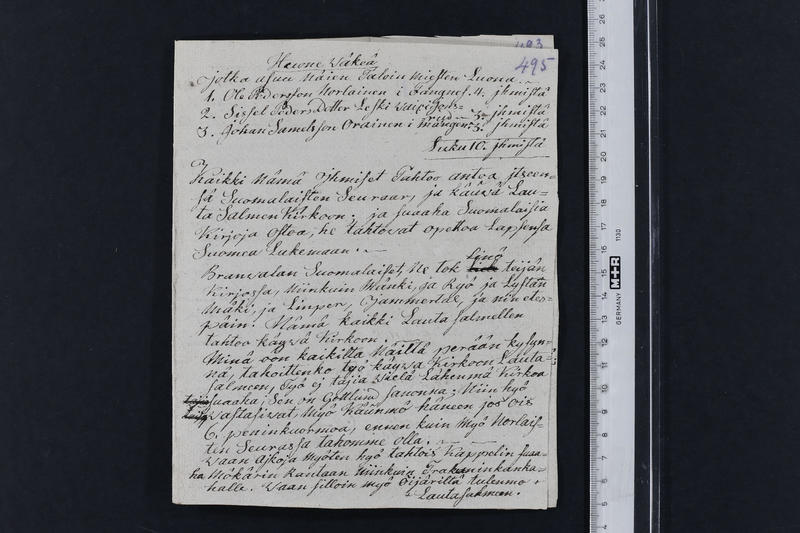 493
495
Huone Wäkeä
jotka asuu näien Taloin miesten Luona.
1. Ole Pedersson Norlainen i Gangnes. 4. jhmistä
2. Sissel Peders Dotter Leski 3. jhmistä
3. Johan Samelsson Orainen i 3. jhmistä
Suku 10. jhmistä
Kaikki Nämä Jhmiset Tahtoo antoa jtzeen=
sä Suomalaisten Seuraar, ja käüvä Lau=
ta Salmen Kirkoon. ja suaaha Suomalaisia
Kirjoja Ostoa, he tahtowat opettoa Lapsensa
Suomea Lukemaan. —
Branvalan Suomalaiset, Ne tok Sinä teijän
Kirjossa, niinkuin Mänki, ja Ryö ja Lystan
mäki, ja Linper, Gammerlde, ja nin etes=
päin. Nämä kaikki Lauta Salmellen
tahtoo käywä Kirkoon.
Minä oon kaikilta Näiltä perään kysyn=
nä, tahoittenko työ käywä Kirkoon Lauta=
Salmeen, Työ ej taija vielä Lähennä Kirkoa
suaaha, Sen on Gottlund sanonna; Niin hyö
wastasiwat, Myö käümmö häneen jos ois
6. peninkuormoa, ennen kuin Myö Norlais=
ten Seurassa tahomme olla. —
Waan Ajkoja myöten hyö tahtois kappelin suaa=
ha Mökärin kantaan niinkuin
halle. Waan silloin myö tulemmo
Lauta Salmeen.
GERMANY
M+R
1130
26
25
24
23
22
21
20
19
18
17
16
15
14
13
12
11
10
9
8
7
6
5
4
3
2
1